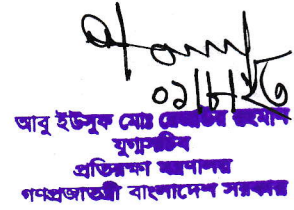 ০১/৮/২৩
আবু ইউসুফ মোঃ রহমান
যুগ্মসচিব
প্রতিরক্ষা মন্ত্রণালয়
গণপ্রজাতন্ত্রী বাংলাদেশ সরকার